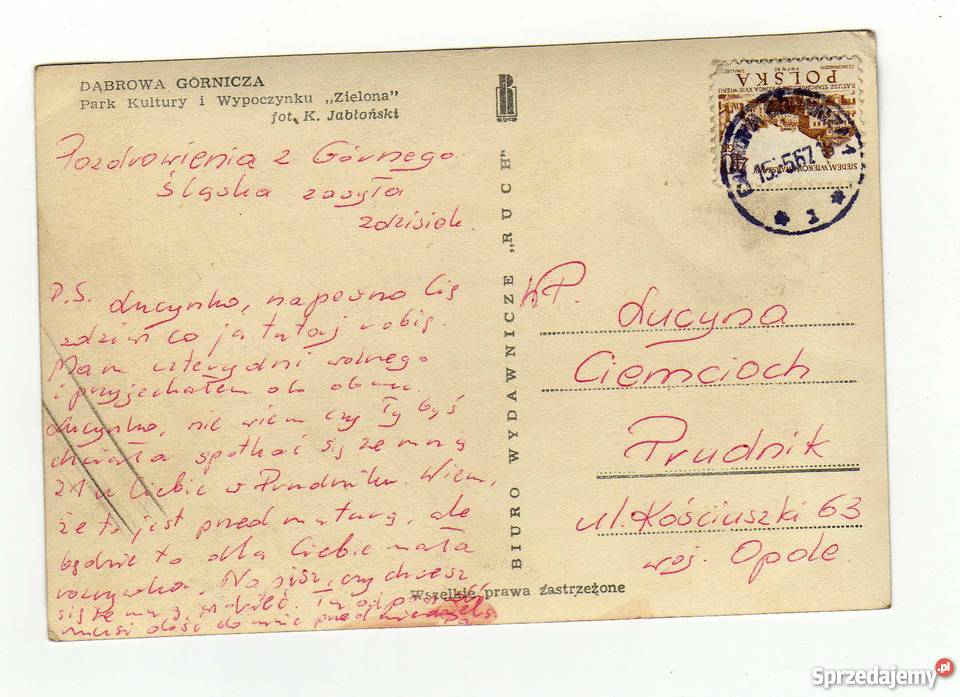 DĄBROWA GÓRNICZA
Park Kultury i Wypoczynku „Zielona"
fot. K. Jabłoński
Pozdrowienia z Górnego
Śląska zasyła
Zdzisiek.
P.S. Lucynko, napewno Cię
zdziwi co ja tutaj robię.
Mam cztery dni wolnego
i przyjechałem do domu.
Lucynko, nie wiem czy Ty byś
chciała spotkać się ze mną
21 u Ciebie w Prudniku. Wiem,
że to jest przed maturą, ale
będzie to dla Ciebie mała
rozrywka. Napisz, czy chcesz
się ze mną widzieć. Ta odpowiedź
musi dojść do mnie przed niedzielą.
BIURO WYDAWNICZE „RUCH"
Wszelkie prawa zastrzeżone
POLSKA
RATUSZ STAROMIEJSKI Z KOŃCA XVIII WIEKU
SIEDEM WIEKÓW WARSZAWY
15.-5.67
1
WP.
Lucyna
Ciemcioch
Prudnik
ul. Kościuszki 63
woj. Opole
Sprzedajemy.pl